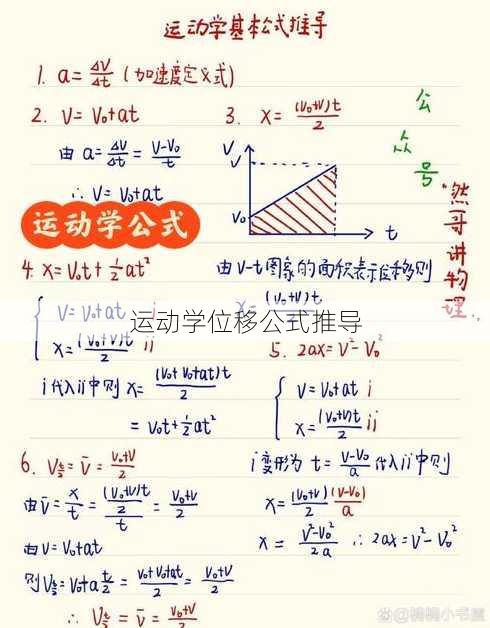 运动学基本公式推导
1. a = ΔV/Δt (加速度定义式)
2. V = V₀+at
由 a = ΔV/Δt = (V-V₀)/t
∴ V = V₀+at
运动学公式
3. x = (V₀+V)t/2
V
V
V₀
t
由V-t图象的面积表示位移则
x = (V₀+V)t/2
公众号
"然哥讲物理"
4. x = V₀t + ½at²
V = V₀+at i
x = (V₀+V)t/2 ii
i代入ii中则 x = (V₀+V₀+at)t/2
= V₀t + ½at²
运动学位移公式推导
5. 2ax = V² - V₀²
V = V₀+at i
x = (V₀+V)t/2 ii
i变形为 t = (V-V₀)/a 代入ii中则
x = (V₀+V)/2 (V-V₀)/a
x = (V²-V₀²)/2a ∴ 2ax = V² - V₀²
6. V_(t/2) = V̄ = (V₀+V)/2
由 V̄ = x/t = ((V₀+V)t/2)/t = (V₀+V)/2
由 V = V₀+at
则 V_(t/2) = V₀+a t/2 = (V₀+V₀+at)/2 = (V₀+V)/2
∴ V_(t/2) = V̄ = (V₀+V)/2